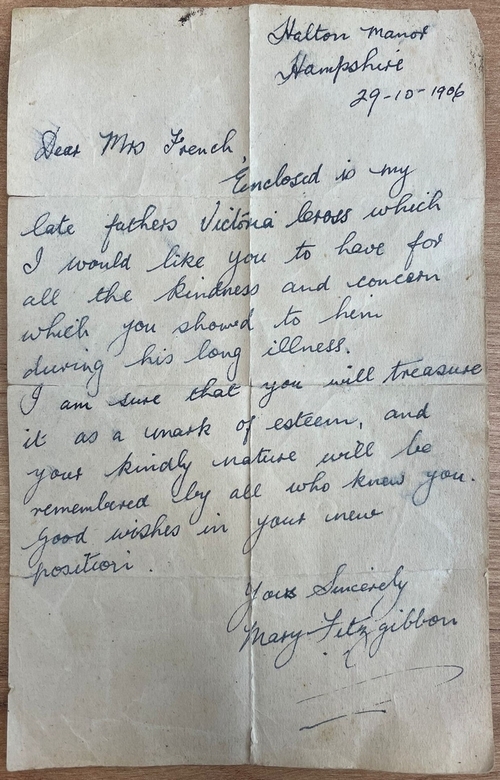 Halton Manor
Hampshire
29-10-1906
Dear Mrs French,
Enclosed is my
late fathers Victoria Cross which
I would like you to have for
all the kindness and concern
which you showed to him
during his long illness.
I am sure that you will treasure
it as a mark of esteem, and
your kindly nature will be
remembered by all who knew you.
Good wishes in your new
position.
Yours Sincerely
Mary Fitzgibbon